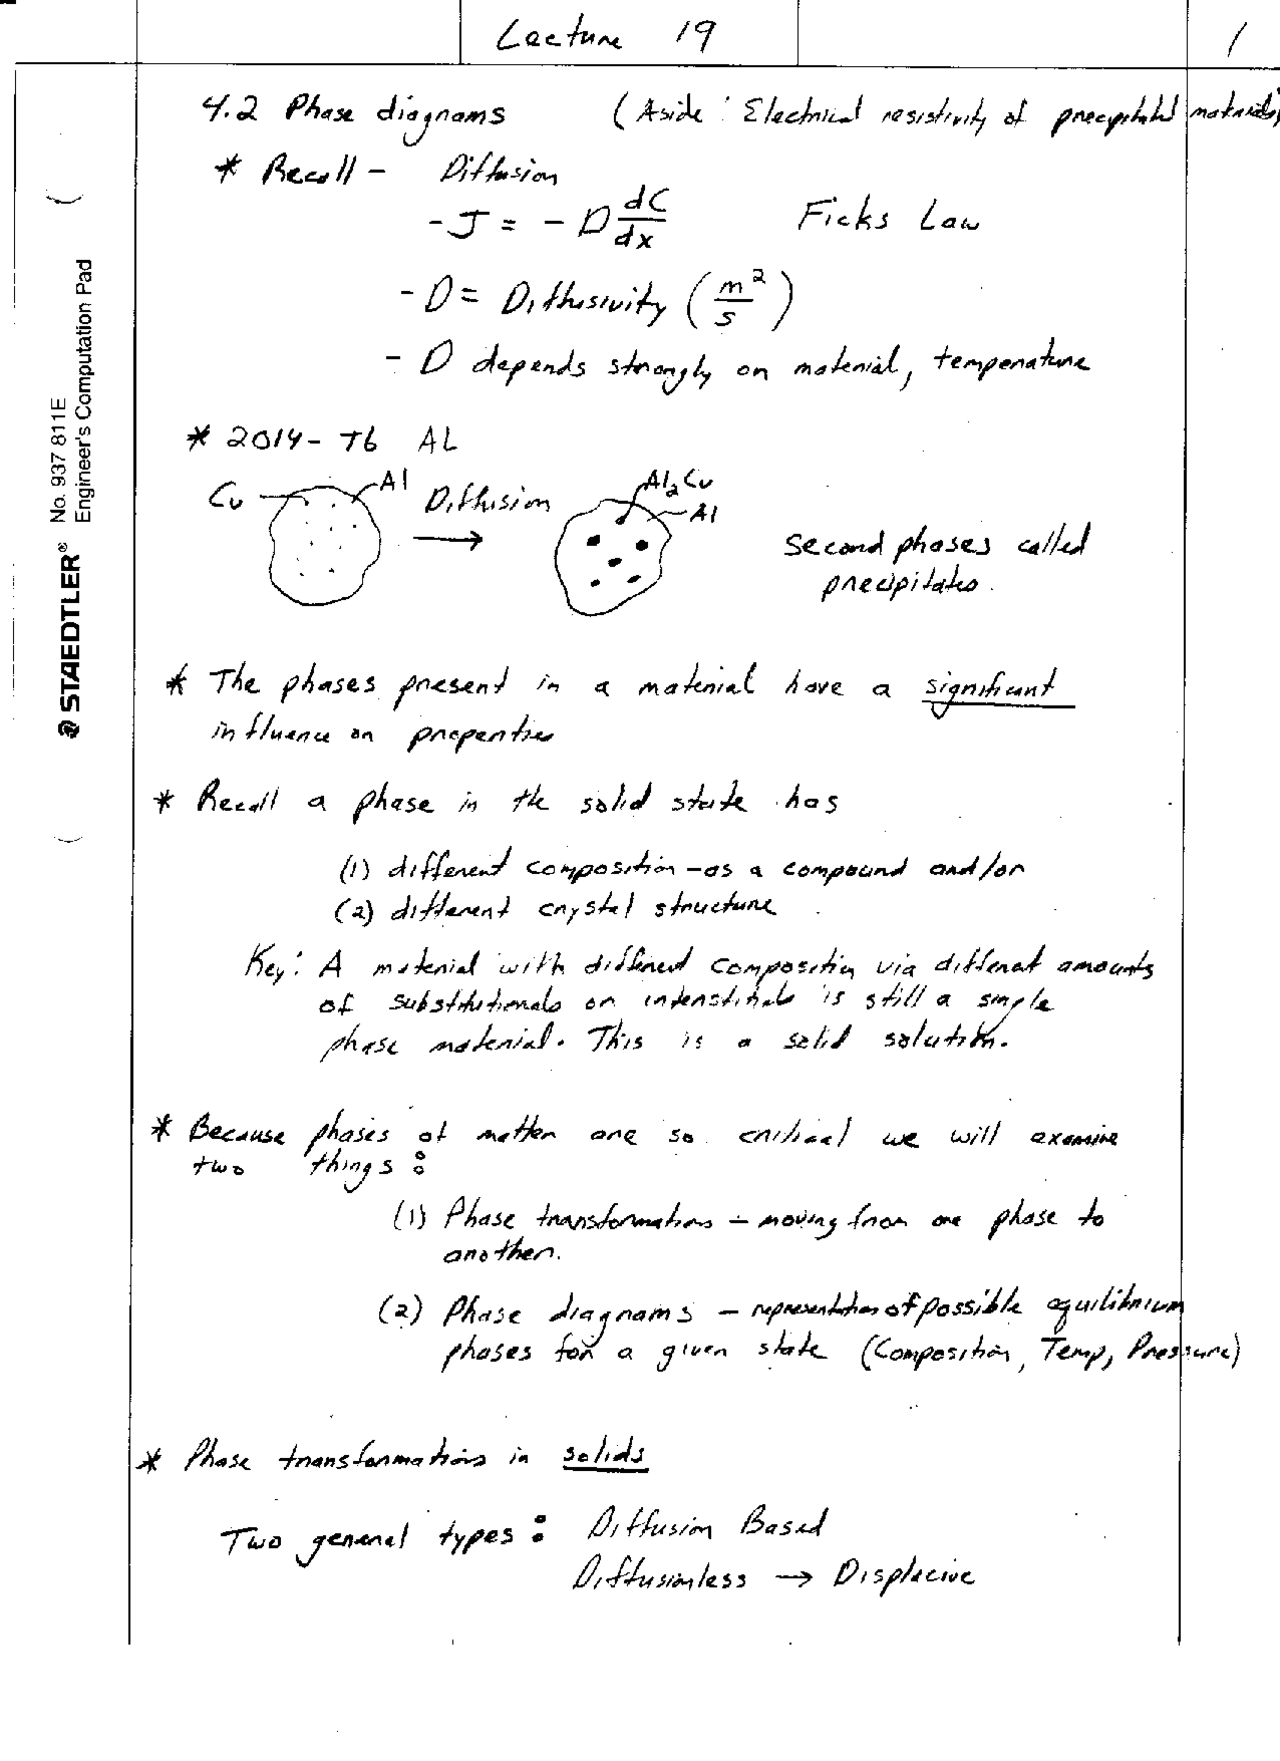 Lecture 19
1
4.2 Phase diagrams (Aside: Electrical resistivity of precipitated materials)
* Recall - Diffusion
- J = - D dC/dx Ficks Law
- D = Diffusivity (m²/s)
- D depends strongly on material, temperature
* 2014-T6 AL
Cu Al Diffusion Al₂Cu
Al
Second phases called
precipitates.
* The phases present in a material have a significant
influence on properties
* Recall a phase in the solid state has
(1) different composition - as a compound and/or
(2) different crystal structure
Key: A material with different composition via different amounts
of substitutionals or interstitials is still a single
phase material. This is a solid solution.
* Because phases of matter are so critical we will examine
two things:
(1) Phase transformations - moving from one phase to
another.
(2) Phase diagrams - representation of possible equilibrium
phases for a given state (Composition, Temp, Pressure)
* Phase transformations in solids
Two general types: Diffusion Based
Diffusionless → Displacive
STAEDTLER® No. 937 811E
Engineer's Computation Pad